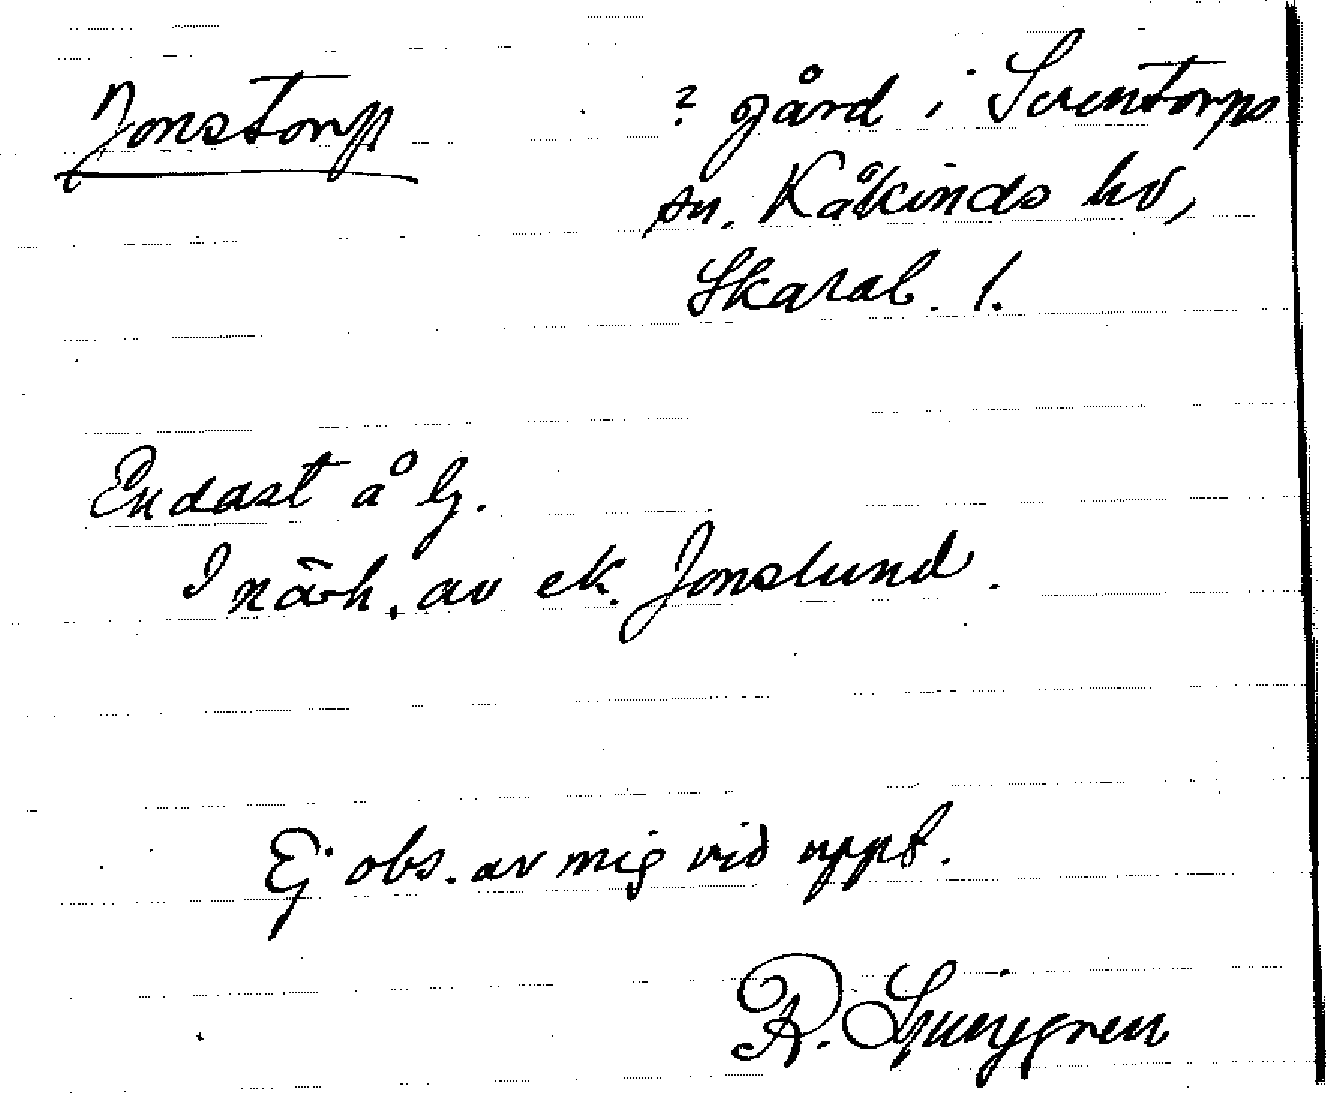 Jonstorp ? gård i Sventorps
sn. Kåkinds hd,
Skarab. l.
Endast å G.
I närh. av ek. Jonslund.
Ej obs. av mig vid uppt.
R. Ljunggren